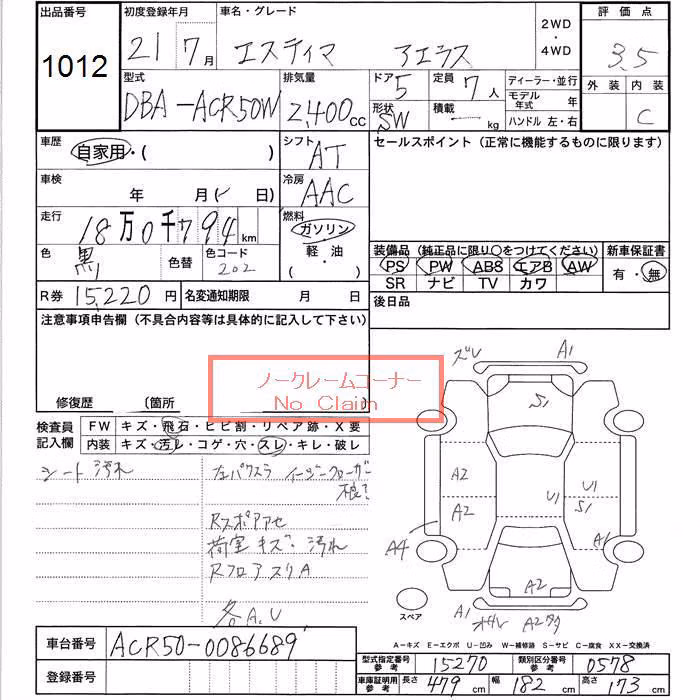 出品番号 初度登録年月 車名・グレード 2WD ・ 4WD 評価点
1012 21 7月 エスティマ アエラス 3.5
型式 排気量 ドア 定員 ディーラー・並行 外装 内装
DBA-ACR50W 2,400cc 5 7人 モデル年式 年 C
形状 SW 積載 - kg ハンドル 左・右
車歴 自家用・( ) シフト AT セールスポイント (正常に機能するものに限ります)
車検 年 月( 日) 冷房 AAC
走行 18万0千794km 燃料 ガソリン
色 黒 色替 色コード 202 軽・油 ・( )
装備品 (純正品に限り○をつけてください) 新車保証書
PS PW ABS エアB AW 有・無
SR ナビ TV カワ
R券 15,220円 名変通知期限 月 日 後日品
注意事項申告欄 (不具合内容等は具体的に記入して下さい)
ノークレームコーナー
No Claim
修復歴 〔箇所
検査員記入欄 FW キズ・飛石・ヒビ割・リペア跡・X要
内装 キズ・汚レ・コゲ・穴・スレ・キレ・破レ
シート汚れ 左パワスラ イージークローザー
Rスポアアセ
荷室 キズ・汚れ
RフロアスリA
各A.U
A1
S1
A2 U1 U1
A2 S1
A4 A1
A2
スペア
A1 A2
A-キズ E-エクボ U-凹み W-補修跡 S-サビ C-腐食 XX-交換済
車台番号 ACR50-0086689
登録番号
型式指定番号 参考 15270 類別区分番号 参考 0578
車庫証明用 参考 長さ 479cm 幅 182cm 高さ 173cm